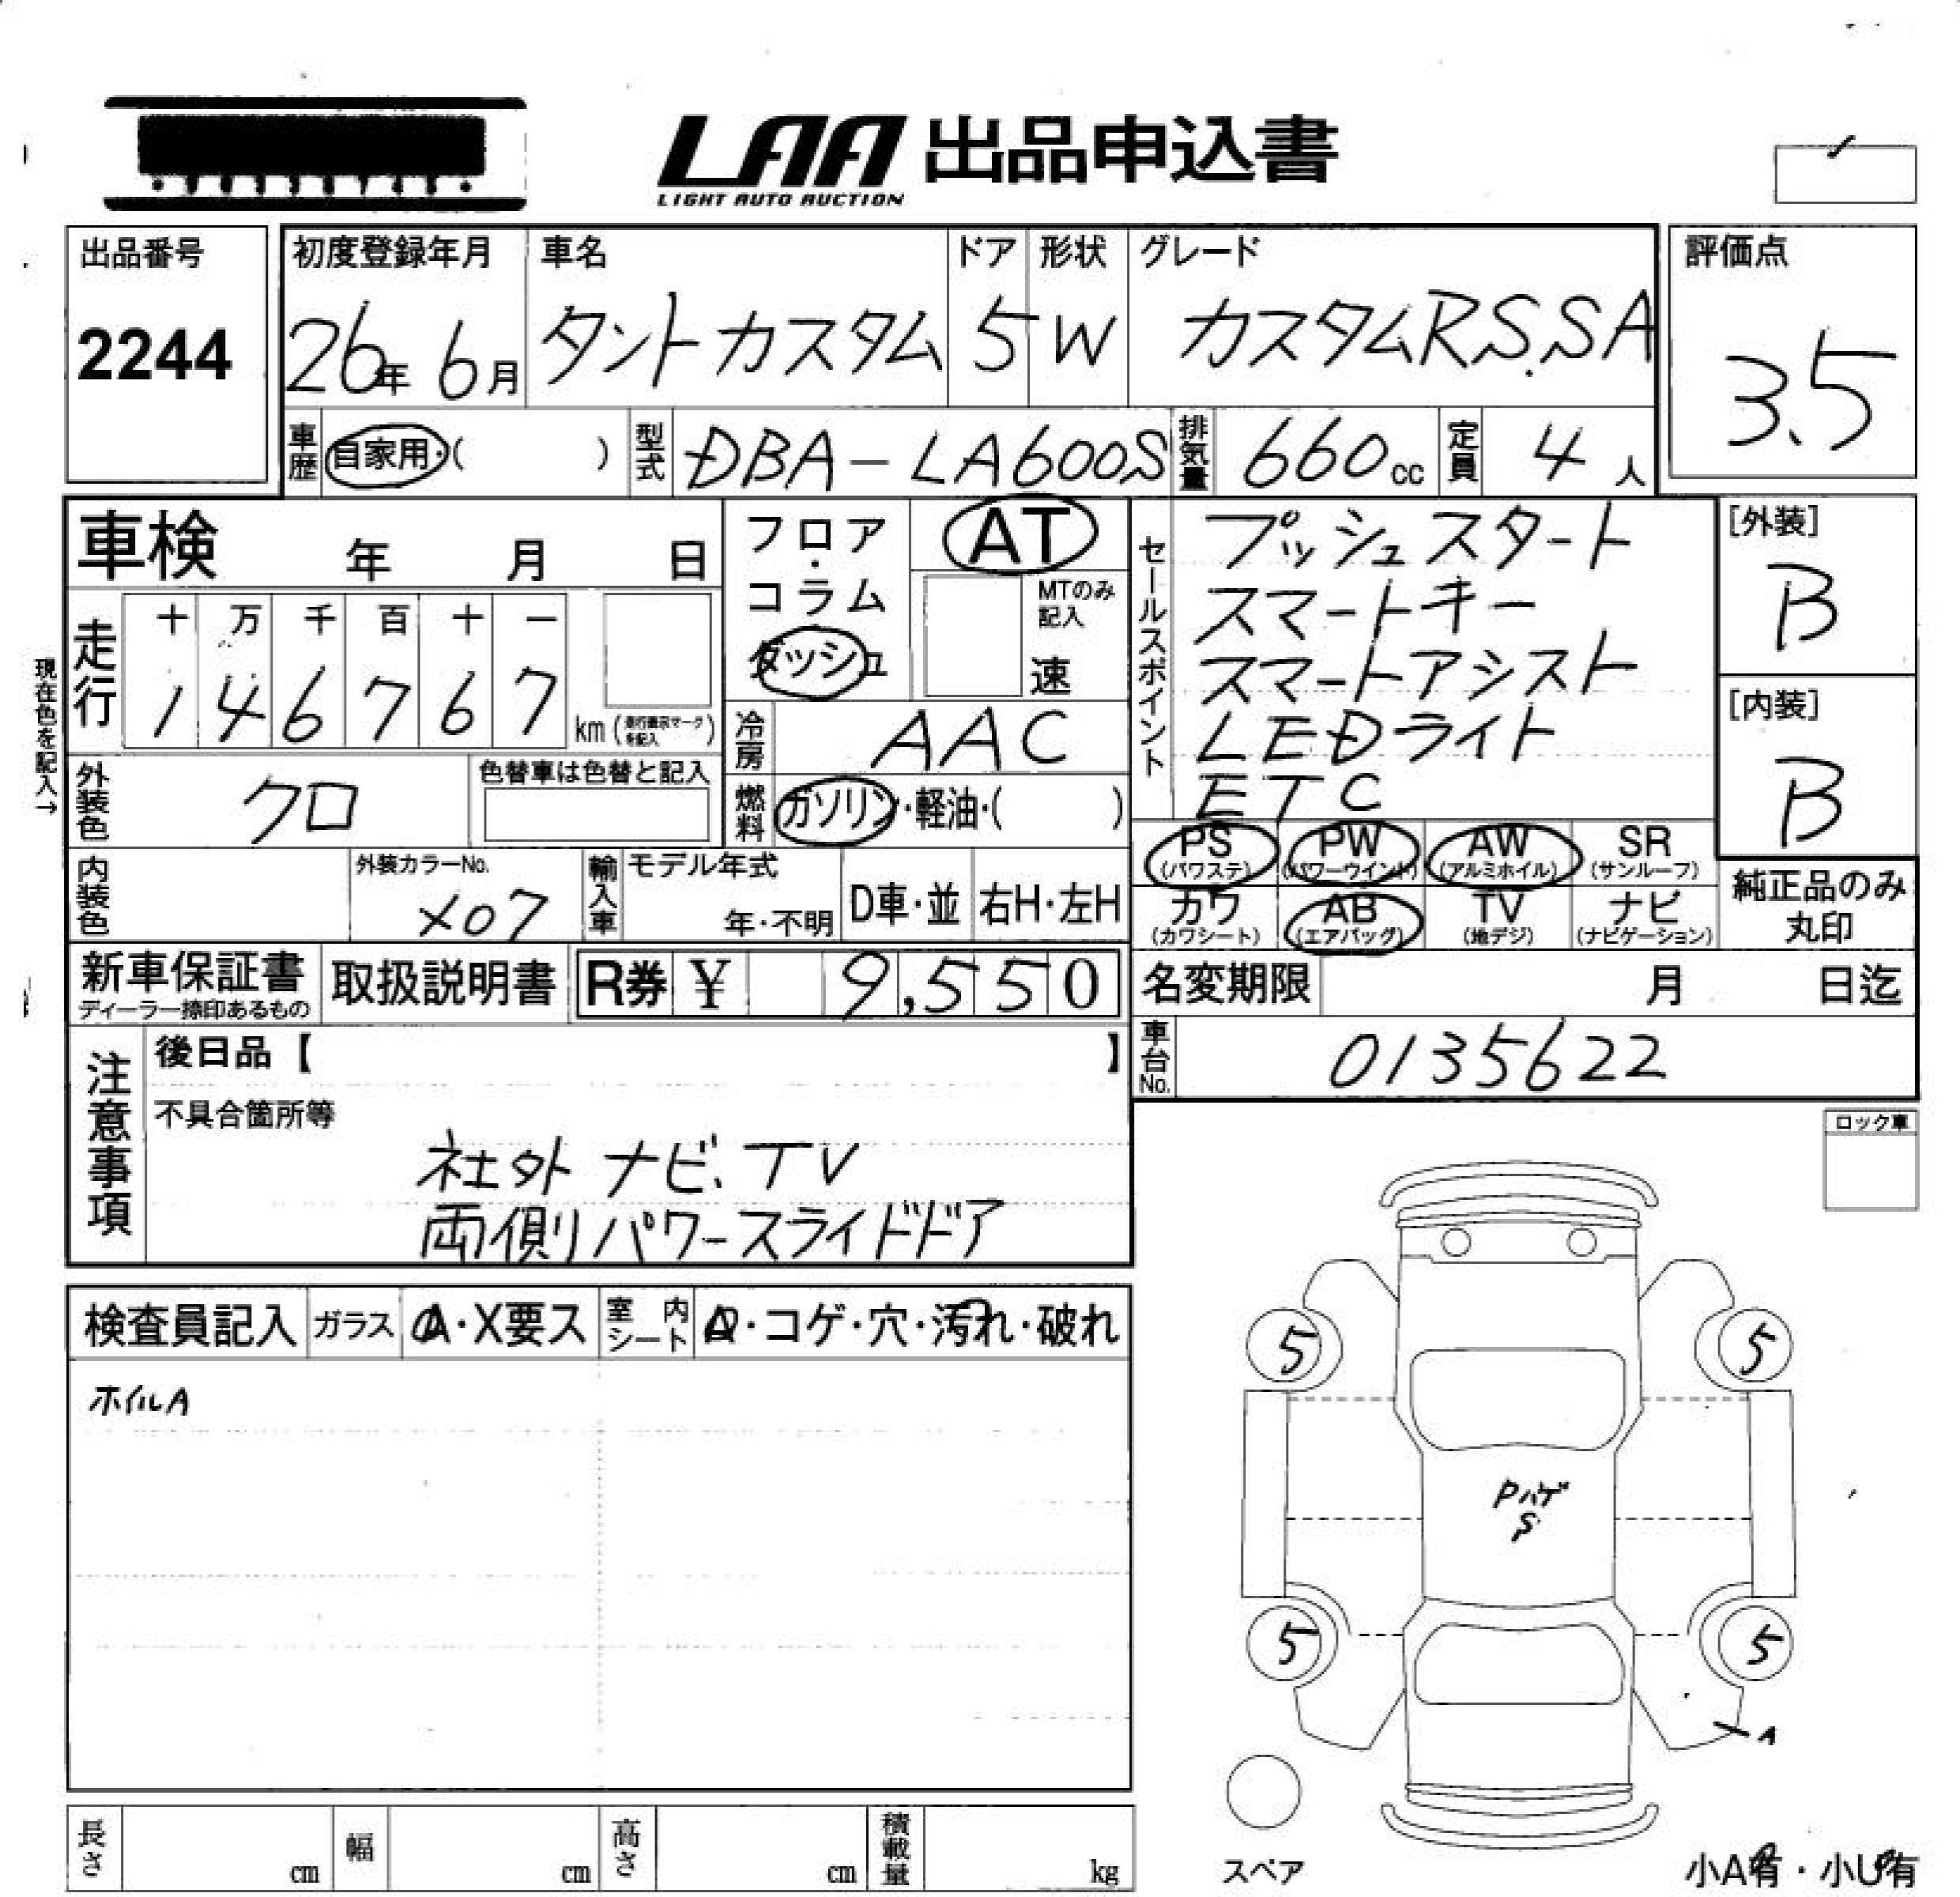 LAA 出品申込書
LIGHT AUTO AUCTION
出品番号
2244
初度登録年月
26年 6月
車名
タントカスタム
ドア
5
形状
W
グレード
カスタムRS.SA
評価点
3.5
車歴
自家用・( )
型式
DBA-LA600S
排気量
660cc
定員
4人
車検 年 月 日
フロア・コラム
ダッシュ
AT
MTのみ記入
速
走行
十 万 千 百 十 一
1 4 6 7 6 7
km(走行表示マークを記入)
現在色を記入→
冷房
AAC
外装色
クロ
色替車は色替と記入
燃料
ガソリン・軽油・( )
内装色
外装カラーNo.
X07
輸入車
モデル年式
年・不明
D車・並
右H・左H
セールスポイント
プッシュスタート
スマートキー
スマートアシスト
LEDライト
ETC
[外装]
B
[内装]
B
PS PW AW SR
(パワステ) (パワーウインド) (アルミホイル) (サンルーフ)
カワ AB TV ナビ
(カワシート) (エアバッグ) (地デジ) (ナビゲーション)
純正品のみ
丸印
新車保証書
ディーラー捺印あるもの
取扱説明書
R券 ¥ 9,550
名変期限 月 日迄
車台No.
0135622
注意事項
後日品【 】
不具合箇所等
社外ナビ.TV
両側パワースライドドア
ロック車
検査員記入
ガラス
A・X要ス
室内シート
A・コゲ・穴・汚れ・破れ
ホイルA
5
5
Pハゲ
S
5
5
A
スペア
小A有・小U有
長さ cm
幅 cm
高さ cm
積載量 kg